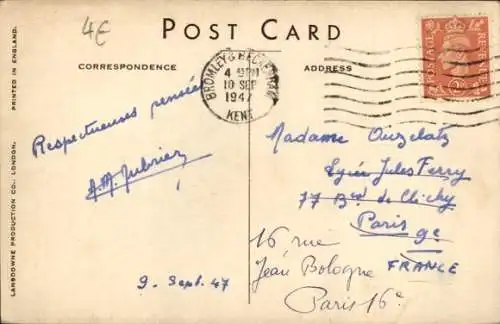 4€
POST CARD
CORRESPONDENCE
ADDRESS
PRINTED IN ENGLAND.
LANSDOWNE PRODUCTION CO., LONDON.
BROMLEY & BECKENHAM
4 PM
10 SEP
1947
KENT
POSTAGE
REVENUE
Respectueuses pensées
9. Sept. 47
Madame
Lycée Jules Ferry
77 Bd de Clichy
Paris 9e
FRANCE
16 rue
Jean Bologne
Paris 16e